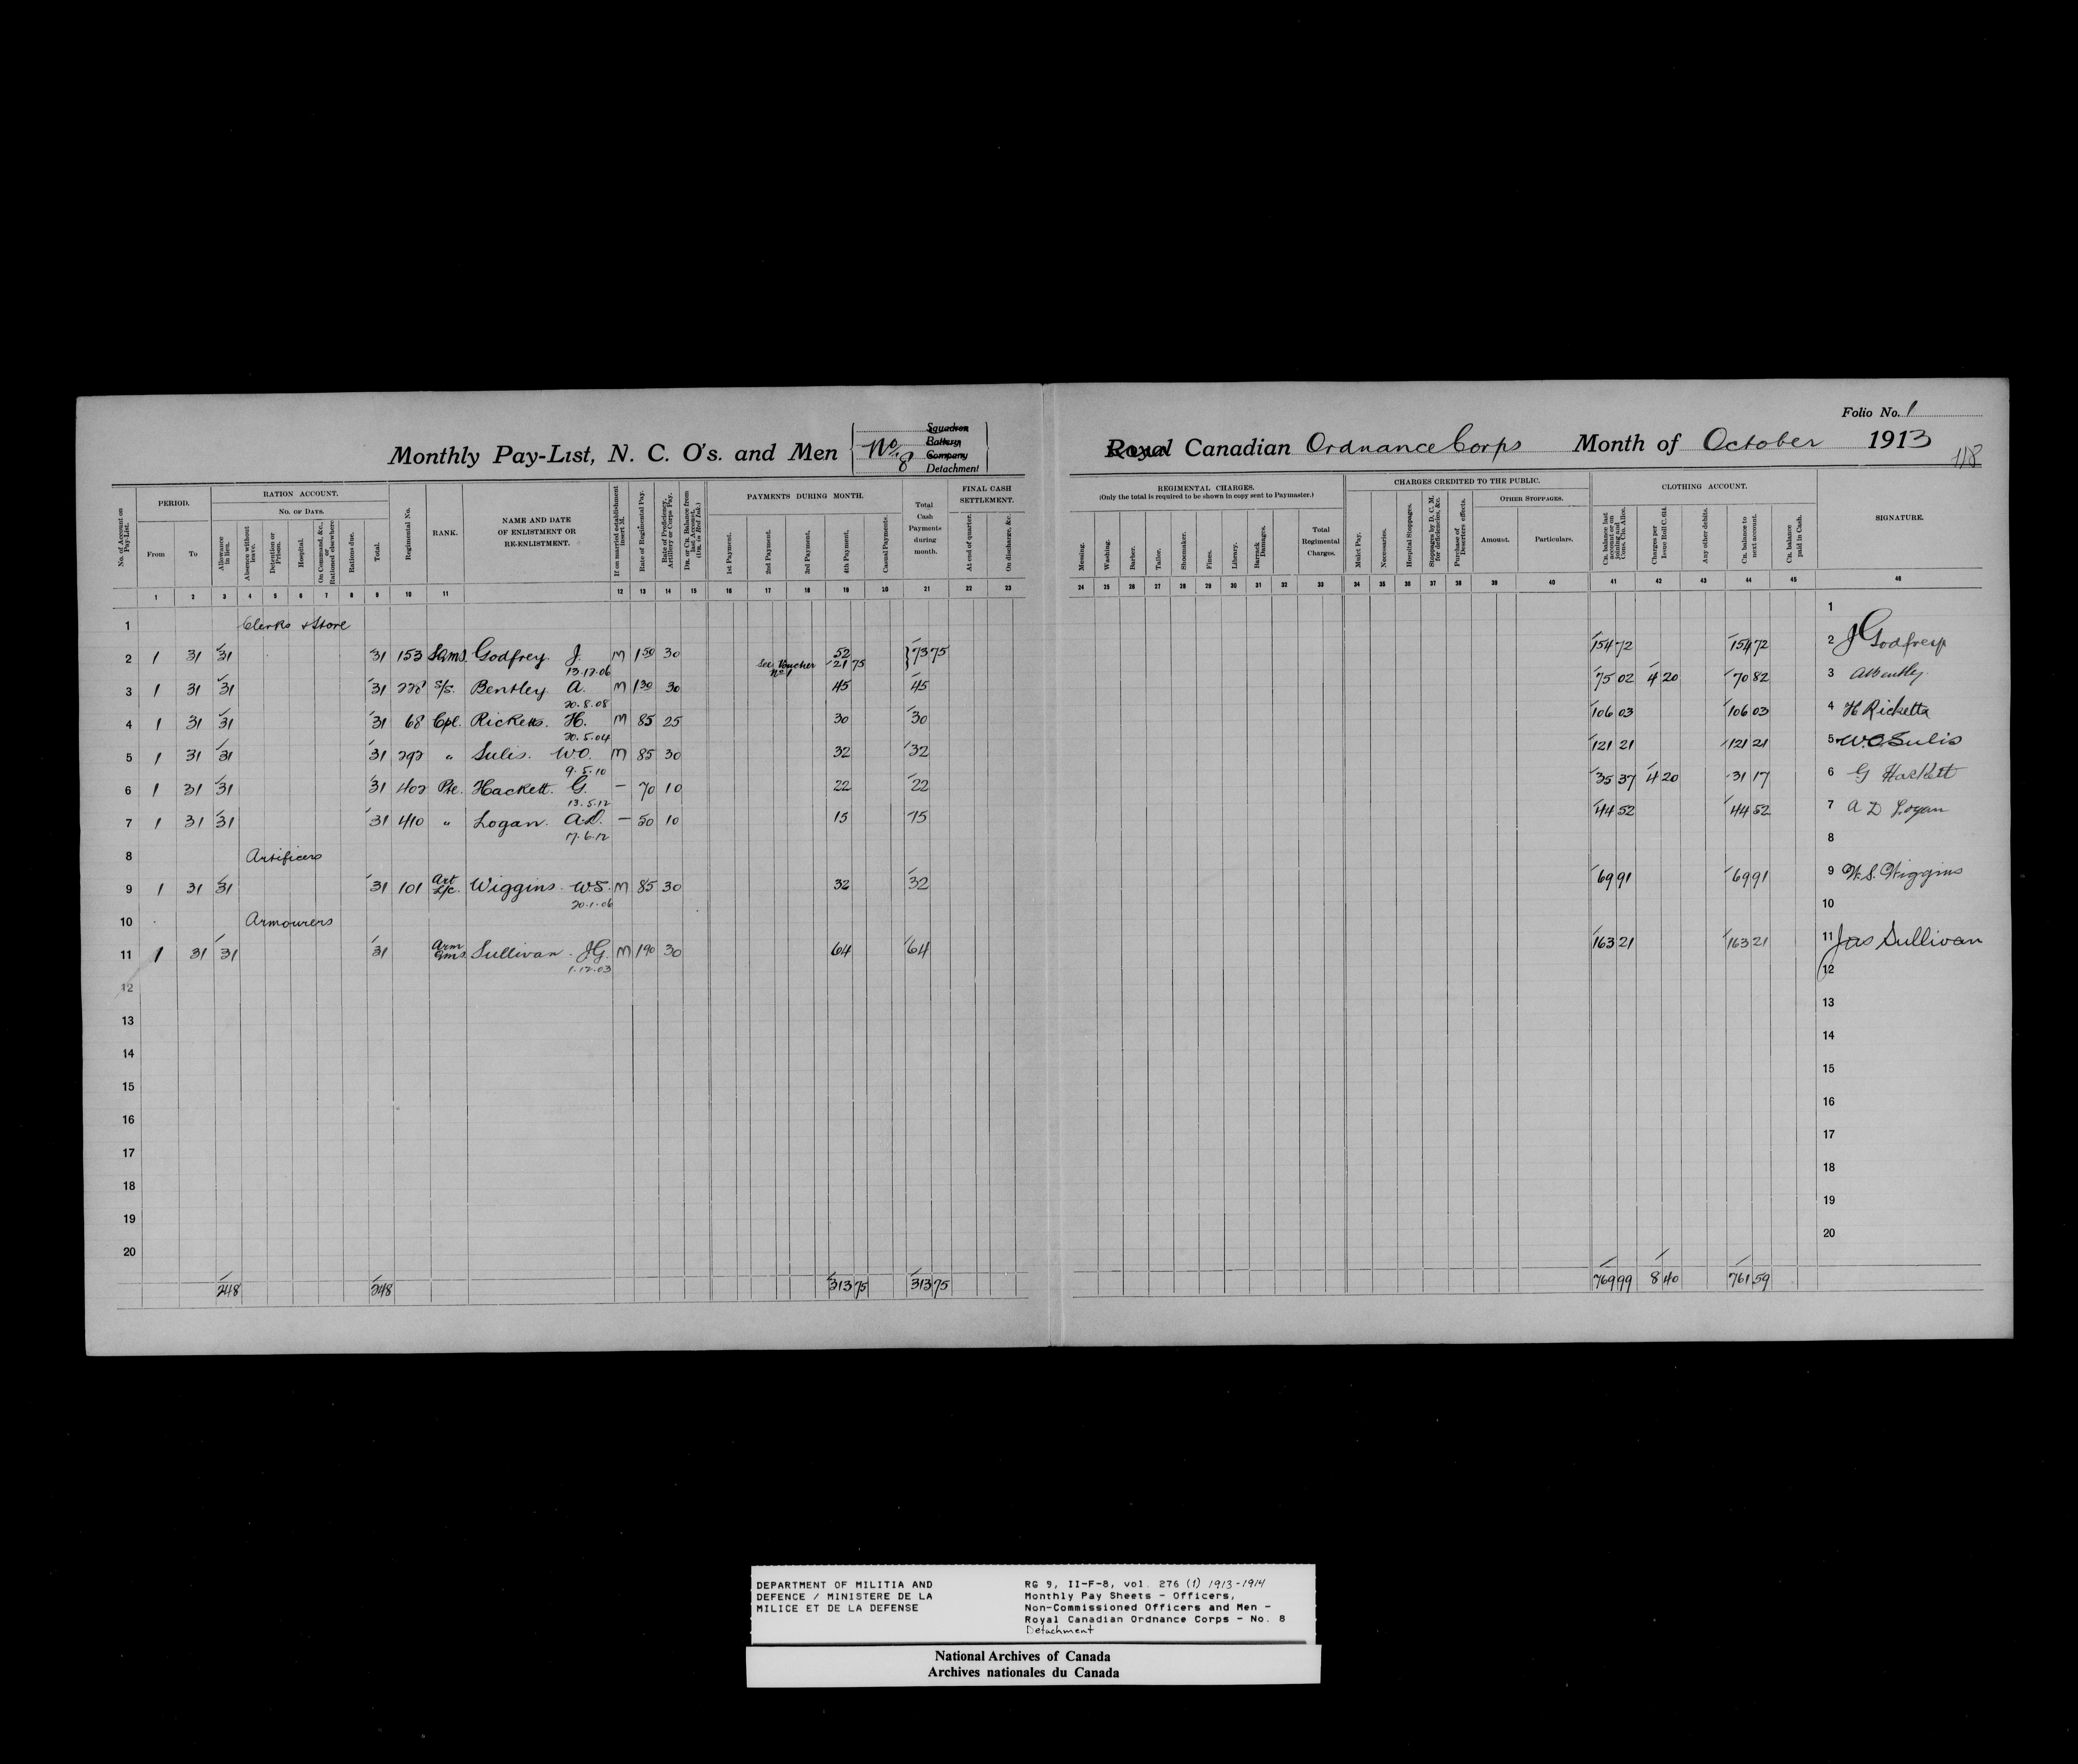 Folio No. 1
Monthly Pay-List, N. C. O's. and Men No 8 Squadron Battery Company Detachment Royal Canadian Ordnance Corps Month of October 1913
118
No. of Account on Pay-List.
PERIOD.
From
To
RATION ACCOUNT.
No. of Days.
Allowance in lieu.
Absence without leave.
Detention or Prison.
Hospital.
On Command, &c., or Rationed elsewhere
Rations due.
Total.
Regimental No.
RANK.
NAME AND DATE OF ENLISTMENT OR RE-ENLISTMENT.
If on married establishment insert M.
Rate of Regimental Pay.
Rate of Proficiency, Artillery or Corps Pay.
Dr. or Cr. Balance from last Account. (Dr. in Red Ink.)
PAYMENTS DURING MONTH.
1st Payment.
2nd Payment.
3rd Payment.
4th Payment.
Casual Payments.
Total Cash Payments during month.
FINAL CASH SETTLEMENT.
At end of quarter.
On discharge, &c.
REGIMENTAL CHARGES.
(Only the total is required to be shown in copy sent to Paymaster.)
Messing.
Washing.
Barber.
Tailor.
Shoemaker.
Fines.
Library.
Barrack Damages.
Total Regimental Charges.
CHARGES CREDITED TO THE PUBLIC.
Mulct Pay.
Necessaries.
Hospital Stoppages.
Stoppages by D. C. M. for deficiencies, &c.
Purchase of Deserters effects.
OTHER STOPPAGES.
Amount.
Particulars.
CLOTHING ACCOUNT.
Cr. balance last account or on joining and Cons. Clo. Allce.
Charges per Issue Roll C. 614.
Any other debits.
Cr. balance to next account.
Cr. balance paid in Cash.
SIGNATURE.
1 2 3 4 5 6 7 8 9 10 11 12 13 14 15 16 17 18 19 20 21 22 23 24 25 26 27 28 29 30 31 32 33 34 35 36 37 38 39 40 41 42 43 44 45 46
1 Clerks & Store 1
2 1 31 31 31 153 Godfrey. J. M 1 50 30 52 73 75 154 72 154 72 2 J Godfrey
13.12.06 See Voucher No 1 21 75
3 1 31 31 31 228 S/S. Bentley A. M 1 30 30 45 45 75 02 4 20 70 82 3 A Bentley
20.8.08
4 1 31 31 31 68 Cpl. Ricketts. H. M 85 25 30 30 106 03 106 03 4 H Ricketts
20.5.04
5 1 31 31 31 292 " Sulis. W.O. M 85 30 32 32 121 21 121 21 5 W.O. Sulis
9.5.10
6 1 31 31 31 402 Pte. Hackett. G. — 70 10 22 22 35 37 4 20 31 17 6 G Hackett
13.5.12
7 1 31 31 31 410 " Logan. A.D. — 50 10 15 15 44 52 44 52 7 A D Logan
17.6.12
8 Artificers 8
9 1 31 31 31 101 Art L/c. Wiggins. W.S. M 85 30 32 32 69 91 69 91 9 W.S. Wiggins
20.1.06
10 Armourers 10
11 1 31 31 31 Arm Sullivan. J.G. M 1 90 30 64 64 163 21 163 21 11 Jas Sullivan
1.12.03
12 12
13 13
14 14
15 15
16 16
17 17
18 18
19 19
20 20
248 248 313 75 313 75 769 99 8 40 761 59
DEPARTMENT OF MILITIA AND
DEFENCE / MINISTERE DE LA
MILICE ET DE LA DEFENSE
RG 9, II-F-8, vol. 276 (1) 1913-1914
Monthly Pay Sheets - Officers,
Non-Commissioned Officers and Men -
Royal Canadian Ordnance Corps - No. 8
Detachment
National Archives of Canada
Archives nationales du Canada